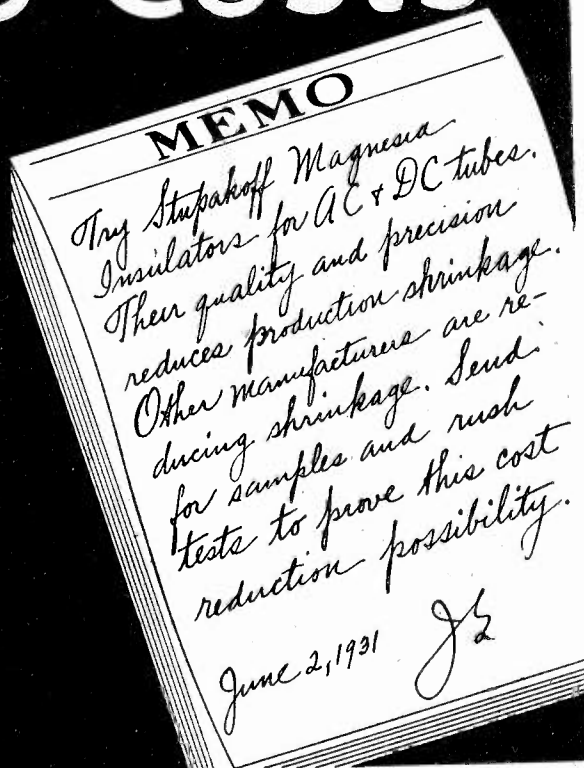 Costs
MEMO
Try Stupakoff Magnesia
Insulators for AC & DC tubes.
Their quality and precision
reduces production shrinkage.
Other manufacturers are re-
ducing shrinkage. Send
for samples and rush
tests to prove this cost
reduction possibility.
June 2, 1931